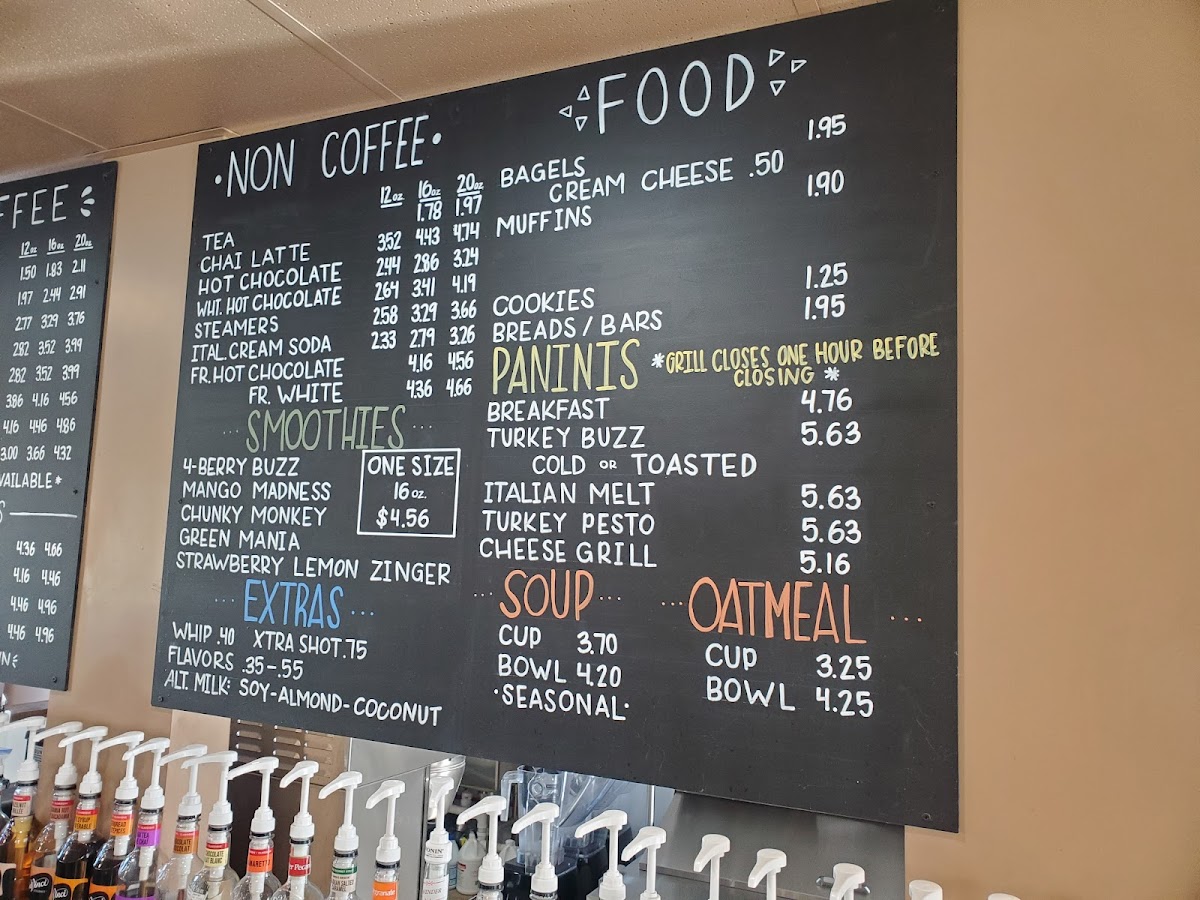 FFEE
12oz 16oz 20oz
1.50 1.83 2.11
1.97 2.44 2.91
2.77 3.29 3.76
2.82 3.52 3.99
2.82 3.52 3.99
3.86 4.16 4.56
4.16 4.46 4.86
3.00 3.66 4.32
VAILABLE*
S
4.36 4.66
4.16 4.46
4.46 4.96
4.46 4.96
•NON COFFEE•
12oz 16oz 20oz
TEA 1.78 1.97
CHAI LATTE 3.52 4.43 4.74
HOT CHOCOLATE 2.44 2.86 3.24
WHT. HOT CHOCOLATE 2.64 3.41 4.19
STEAMERS 2.58 3.29 3.66
ITAL. CREAM SODA 2.33 2.79 3.26
FR. HOT CHOCOLATE 4.16 4.56
FR. WHITE 4.36 4.66
...SMOOTHIES...
4-BERRY BUZZ
MANGO MADNESS
CHUNKY MONKEY
GREEN MANIA
STRAWBERRY LEMON ZINGER
ONE SIZE
16 oz.
$4.56
...EXTRAS...
WHIP .40 XTRA SHOT .75
FLAVORS .35-.55
ALT. MILK: SOY-ALMOND-COCONUT
FOOD
BAGELS 1.95
CREAM CHEESE .50
MUFFINS 1.90
COOKIES 1.25
BREADS / BARS 1.95
PANINIS *GRILL CLOSES ONE HOUR BEFORE
CLOSING *
BREAKFAST 4.76
TURKEY BUZZ 5.63
COLD OR TOASTED
ITALIAN MELT 5.63
TURKEY PESTO 5.63
CHEESE GRILL 5.16
...SOUP...
CUP 3.70
BOWL 4.20
•SEASONAL•
...OATMEAL...
CUP 3.25
BOWL 4.25